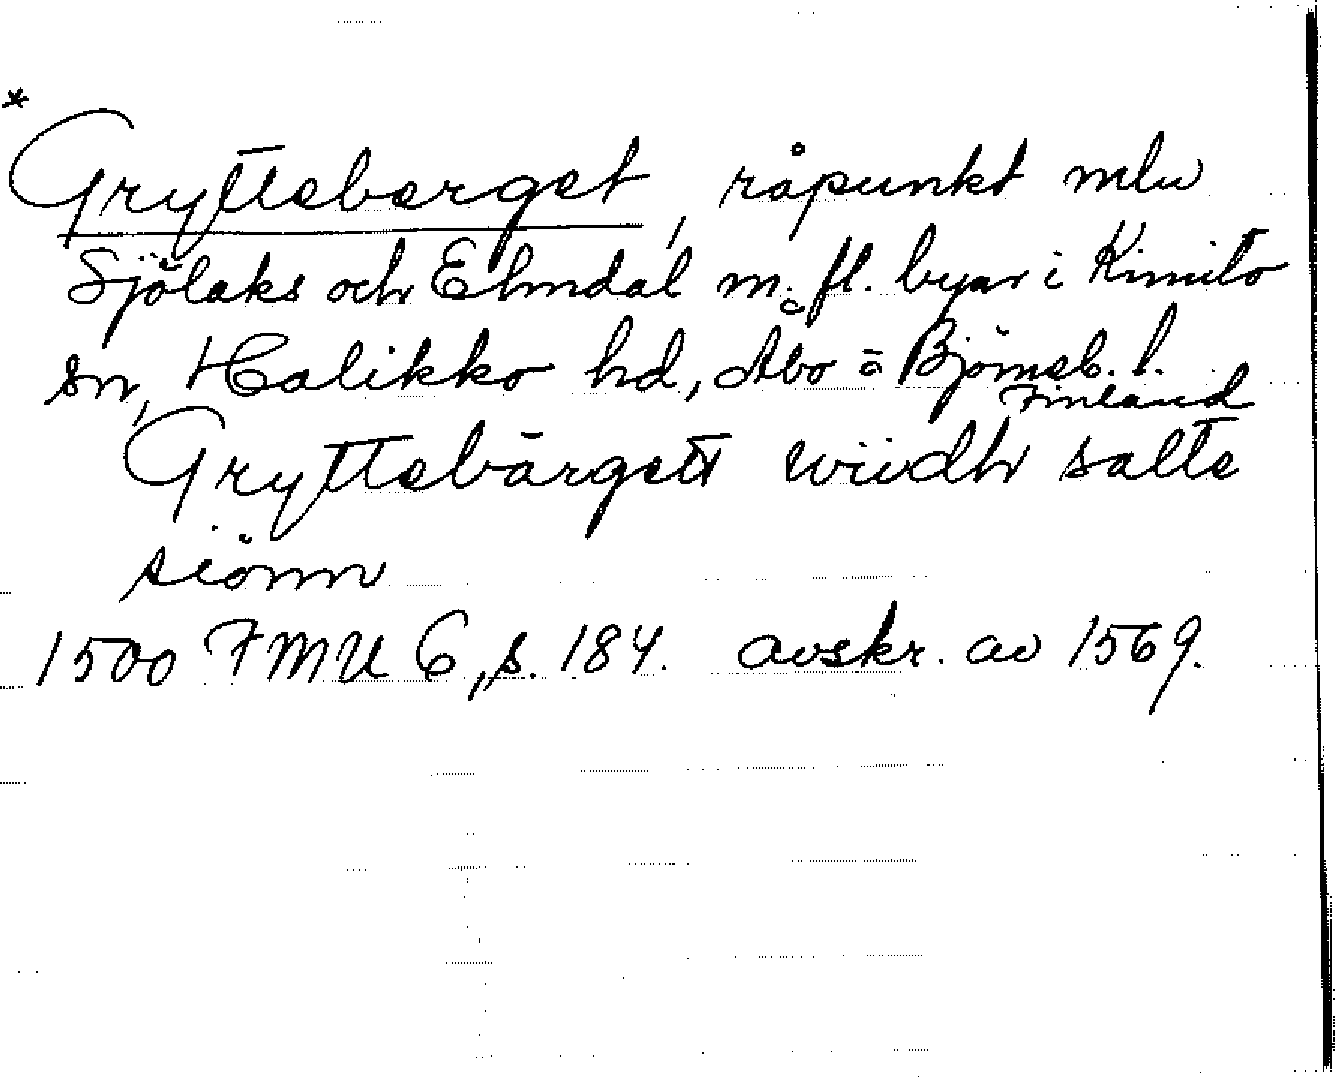 *
Grytteberget, råpunkt mlu
Sjölaks och Elmdal m. fl. byar i Kimito
sn, Halikko hd, Åbo o Björneb. l.
Finland
Gryttebärgett wiidh salte
siönn
1500 FMU 6, s. 184. avskr. av 1569.